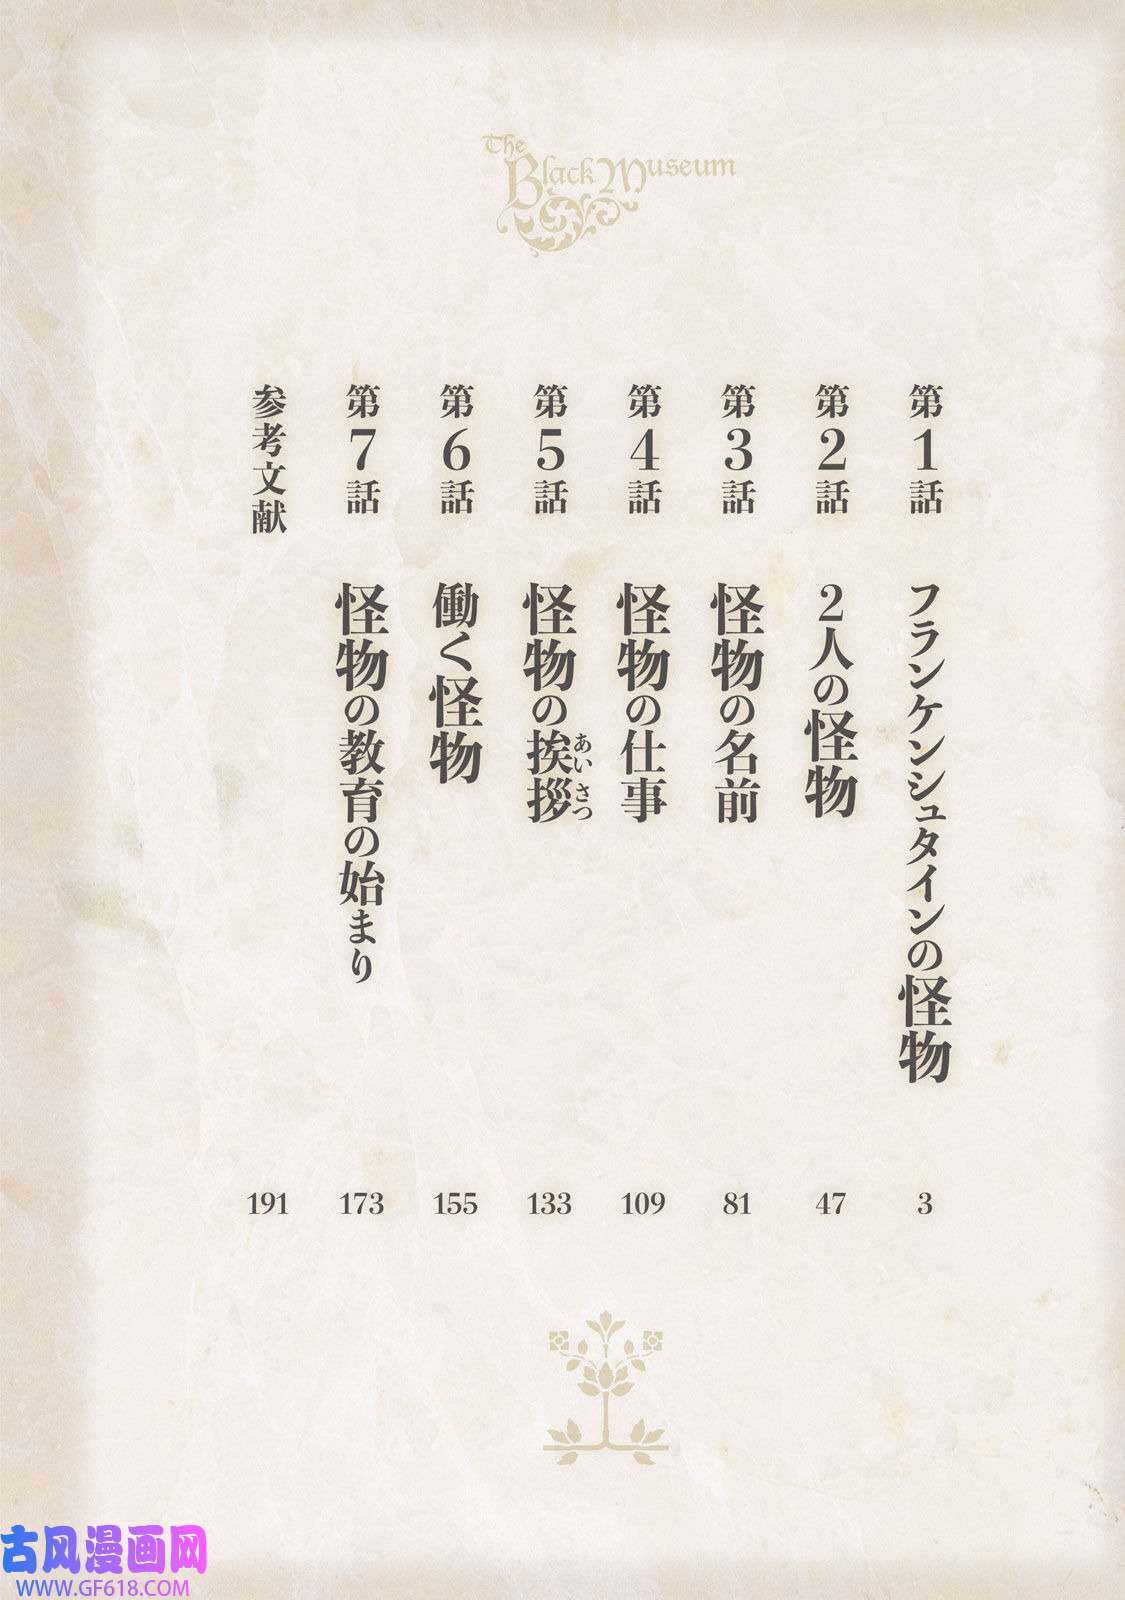 The
Black Museum
第1話 フランケンシュタインの怪物 3
第2話 2人の怪物 47
第3話 怪物の名前 81
第4話 怪物の仕事 109
第5話 怪物の挨拶 133
あいさつ
第6話 働く怪物 155
第7話 怪物の教育の始まり 173
参考文献 191
古风漫画网
WWW.GF618.COM